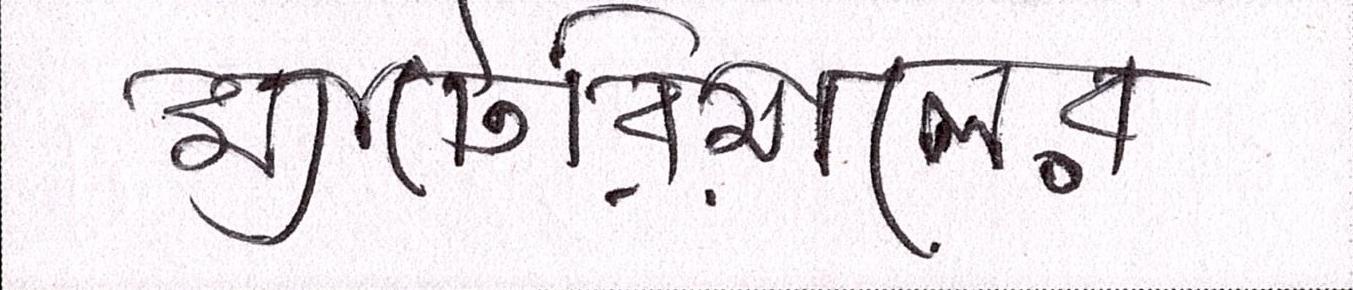 ম্যাটেরিয়ালের